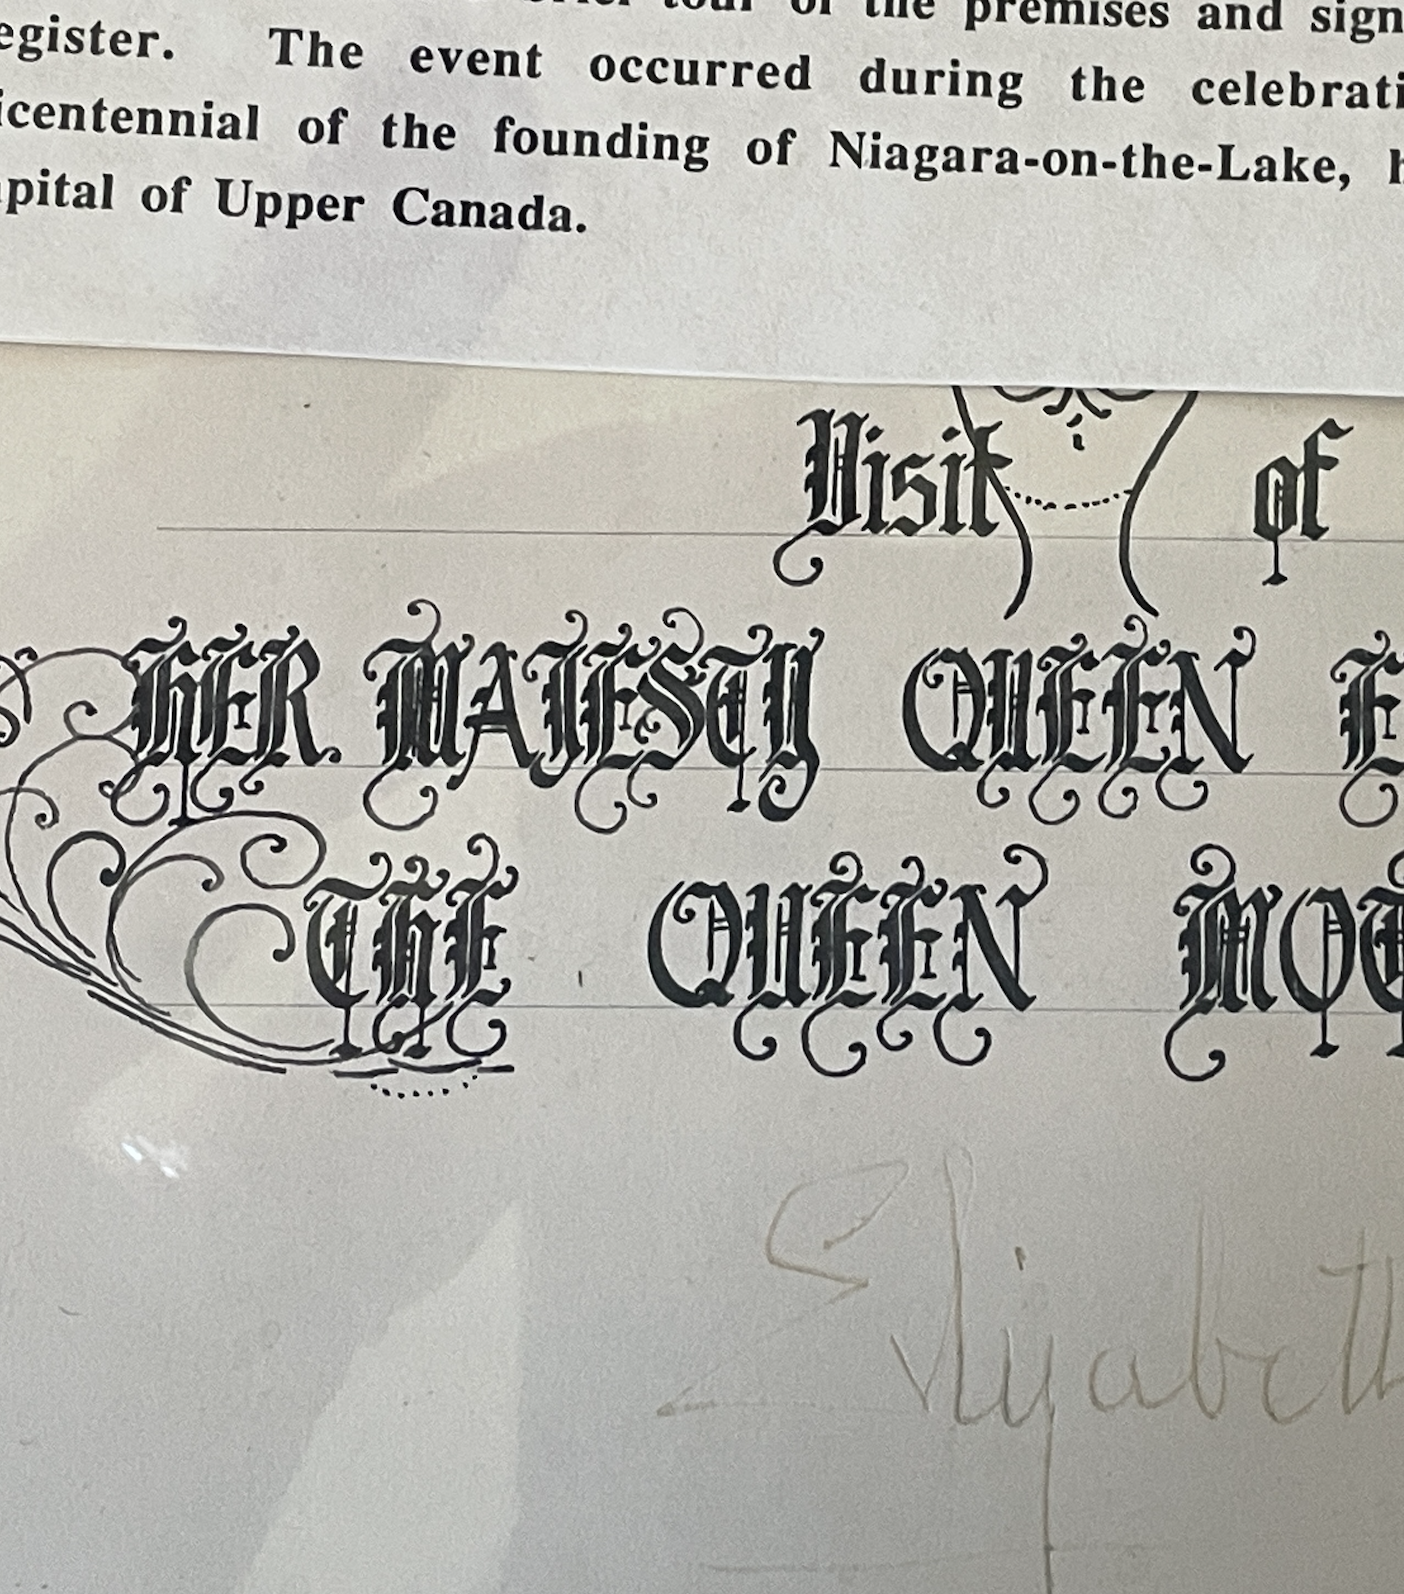 tour of the premises and sign
egister. The event occurred during the celebrati
icentennial of the founding of Niagara-on-the-Lake, h
pital of Upper Canada.
Visit of
HER MAJESTY QUEEN E
THE QUEEN MOT
Elizabeth